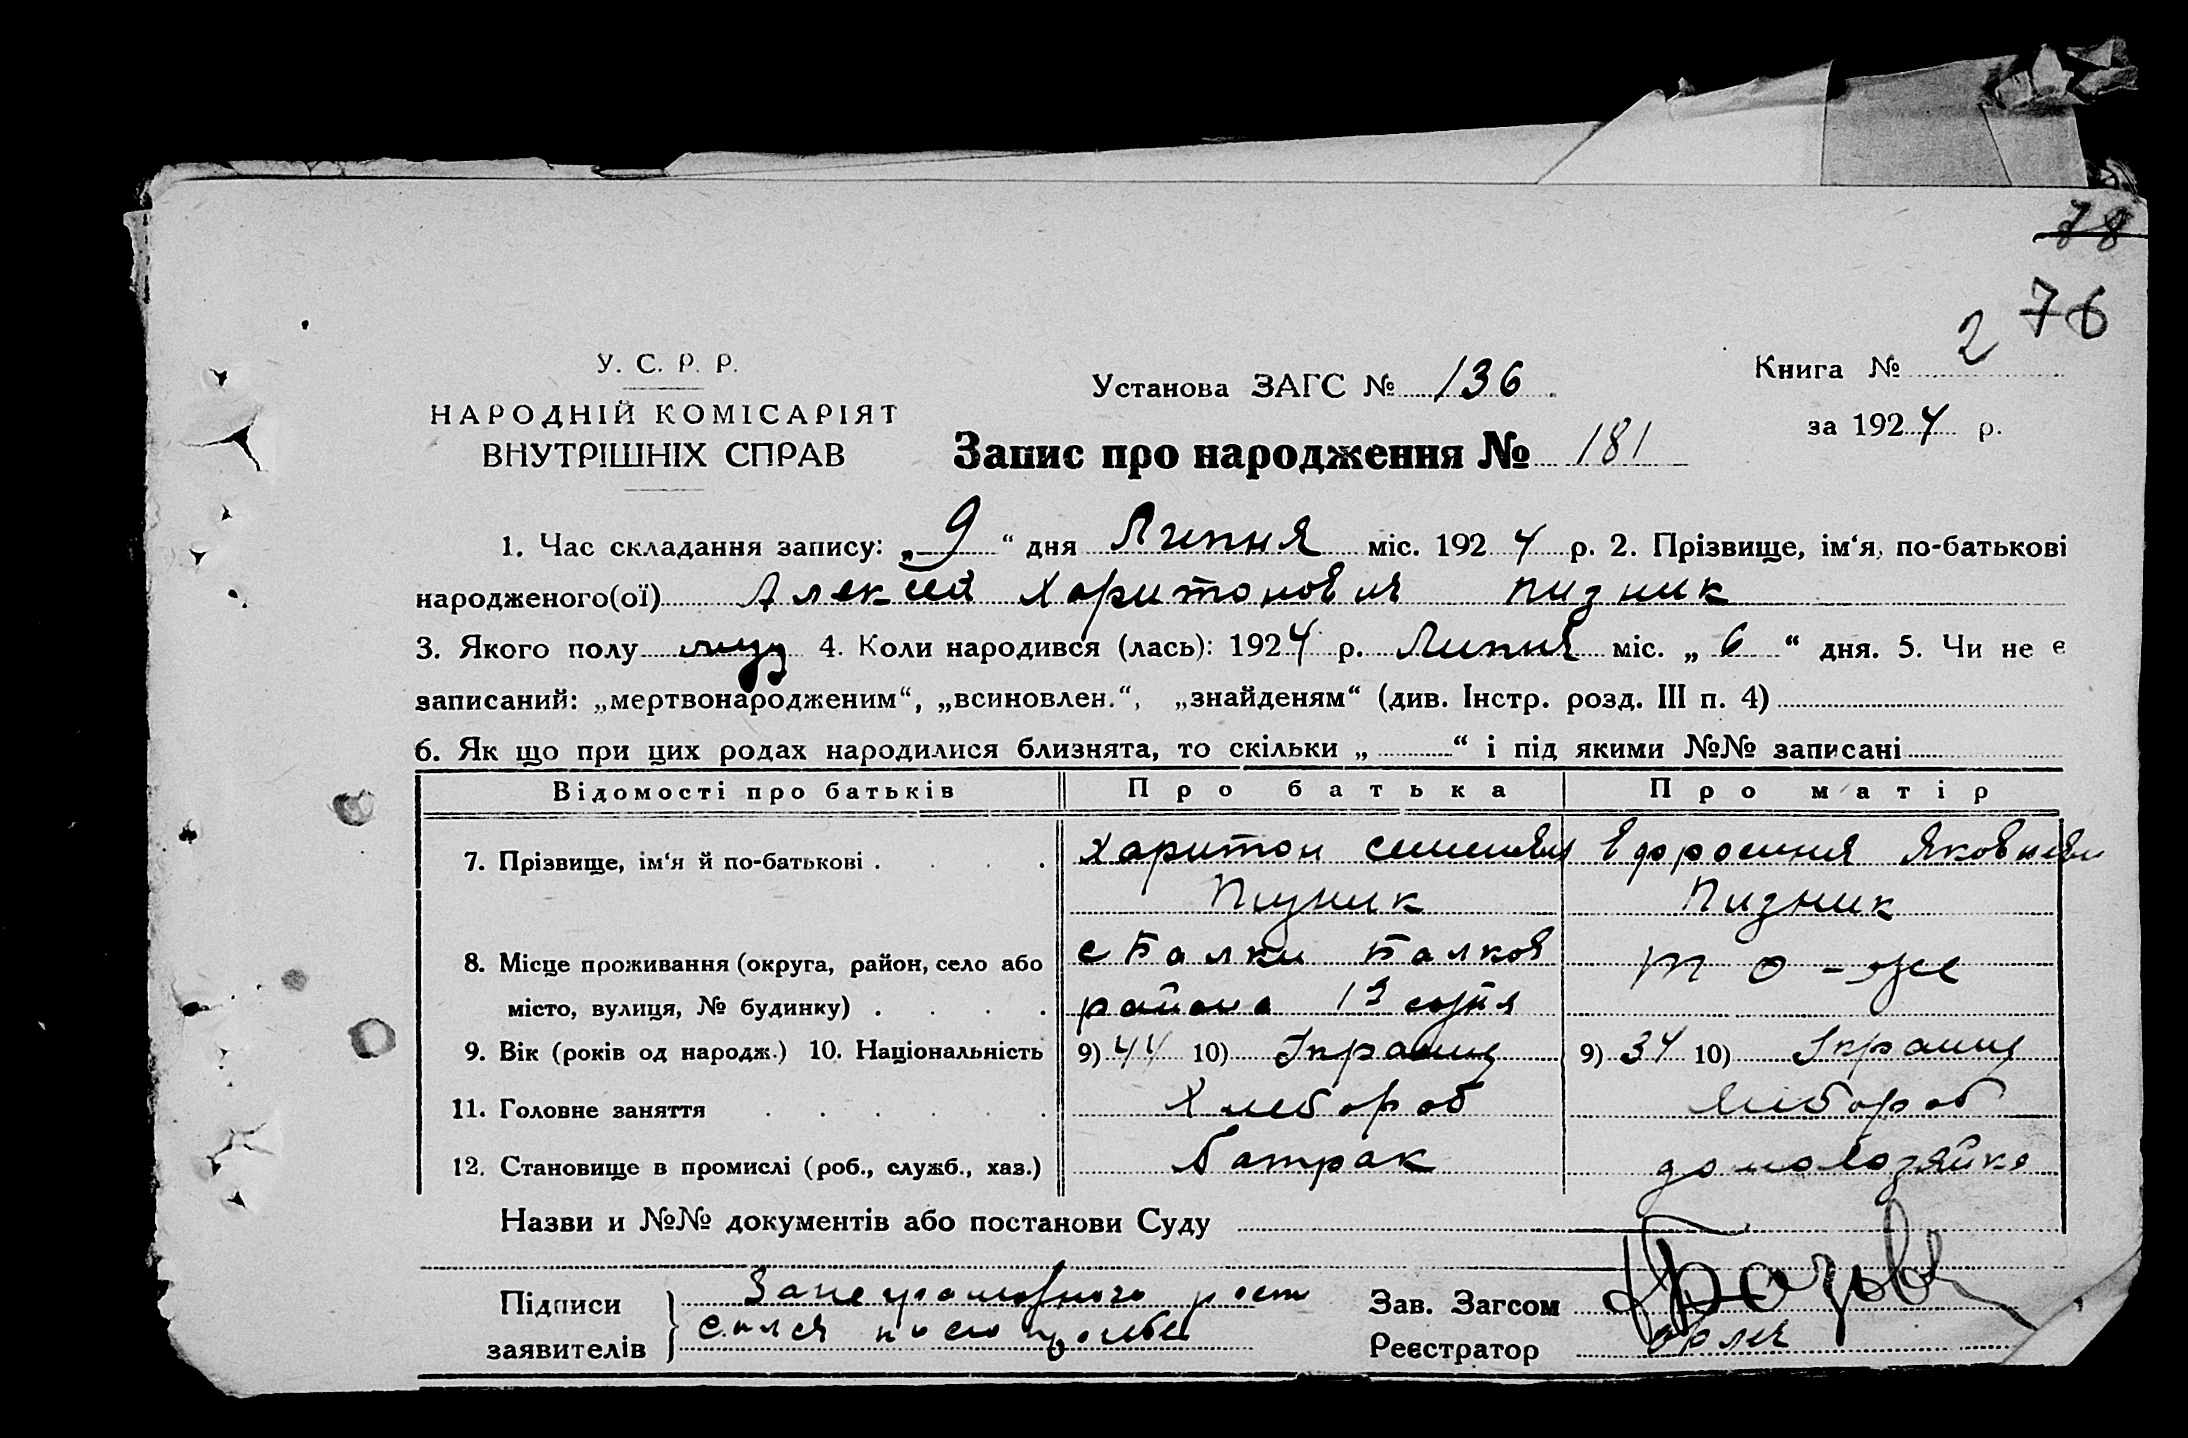 78
76
У. С. Р. Р.
НАРОДНІЙ КОМІСАРІЯТ
ВНУТРІШНІХ СПРАВ
Установа ЗАГС № 136
Книга № 2
за 1924 р.
Запис про народження № 181
1. Час складання запису: „ 9 “ дня Липня міс. 1924 р. 2. Прізвище, ім‘я, по-батькові
народженого(ої) Алексей Харитонов Пизник
3. Якого полу муз 4. Коли народився (лась): 1924 р. Липня міс. „ 6 “ дня. 5. Чи не є
записаний: „мертвонародженим“, „всиновлен.“, „знайденям“ (див. Інстр. розд. III п. 4)
6. Як що при цих родах народилися близнята, то скільки „ “ і під якими №№ записані
Відомості про батьків Про батька Про матір
7. Прізвище, ім‘я й по-батькові . . . . Харитон Яковне
Пизник Пизник
8. Місце проживання (округа, район, село або с Балки Балков то-же
місто, вулиця, № будинку) . . . . района
9. Вік (років од народж.) 10. Національність 9) 44 10) 9) 34 10)
11. Головне заняття . . . . . . Хлебороб Хлебороб
12. Становище в промислі (роб., служб., хаз.) Батрак домохозяйка
Назви и №№ документів або постанови Суду
Підписи За неграмотного роспи
заявителів сался по его прозьбе
Зав. Загсом
Реєстратор